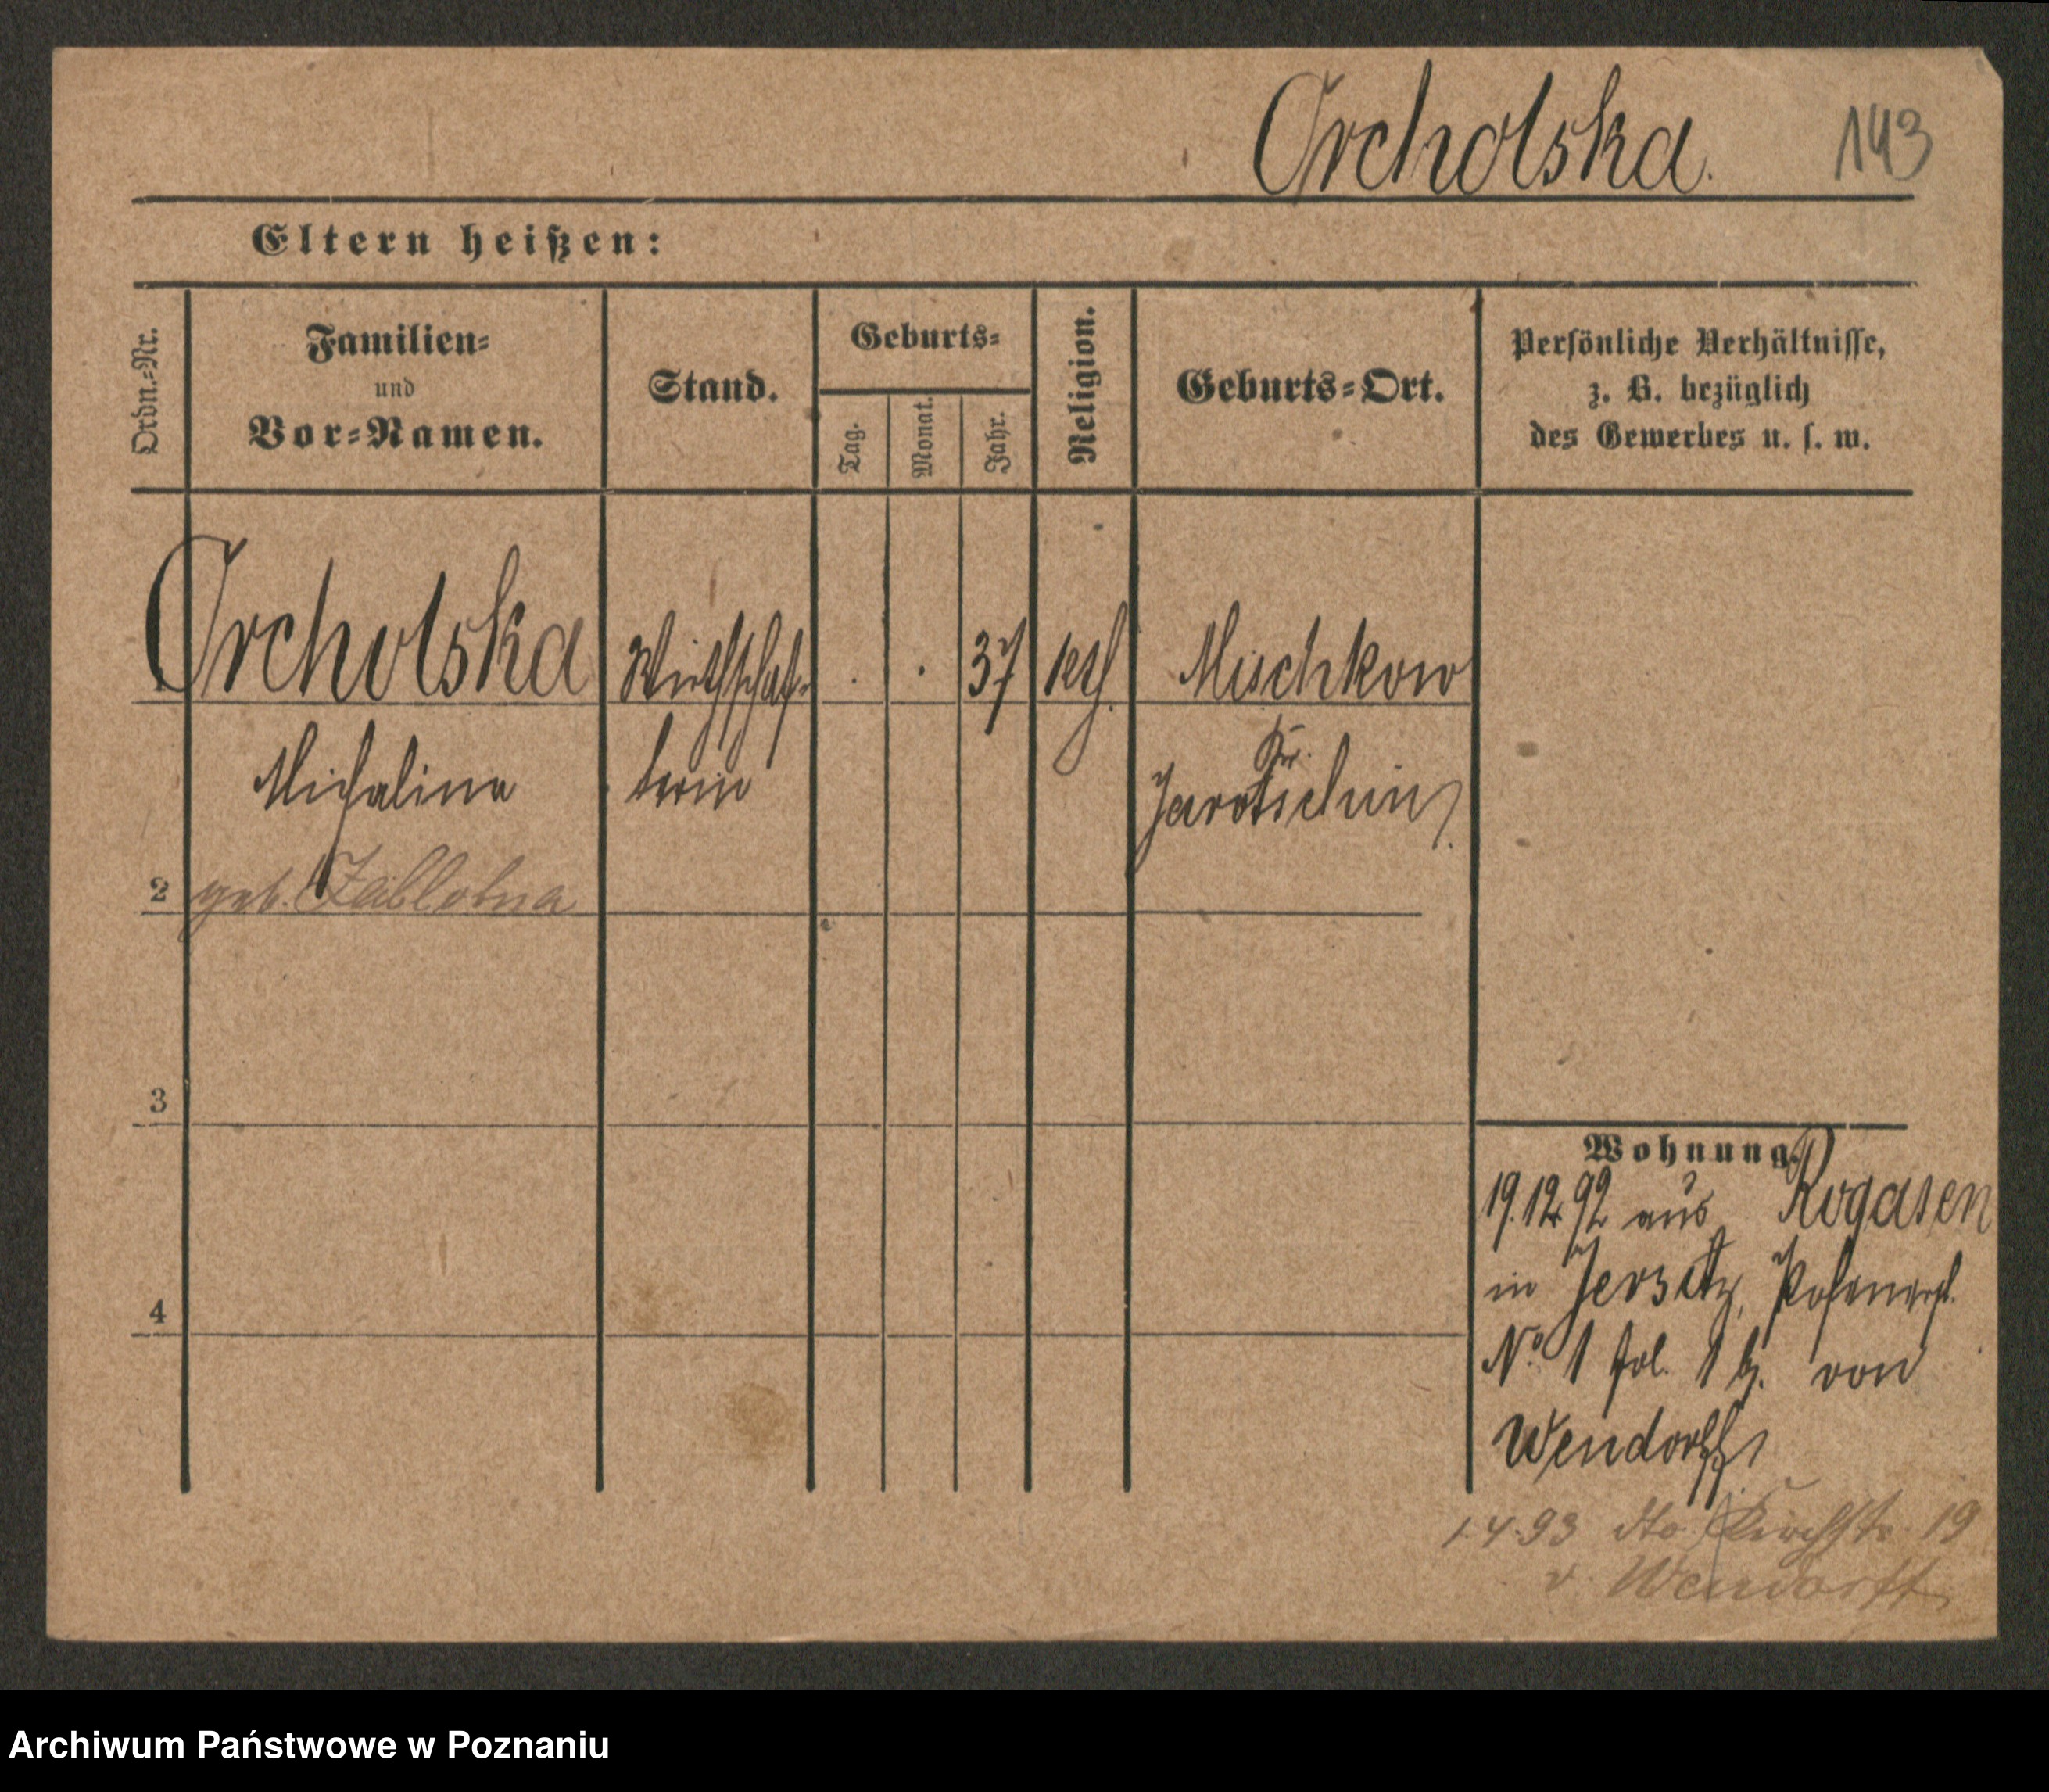 Orcholska.
143
Eltern heißen:
Ordn.-Nr.
Familien-
und
Vor-Namen.
Stand.
Geburts-
Tag.
Monat.
Jahr.
Religion.
Geburts-Ort.
Persönliche Verhältnisse,
z. B. bezüglich
des Gewerbes u. s. w.
1
Orcholska
Wirthschaf-
.
.
37
kth.
Mischkow
Michalina
terin
Kr.
Jarotschin
2
geb. Zablotna
3
4
Wohnung.
19.12.92 aus Rogasen
in Jersitz, Posenerst.
No. 1 fol. 1 b. von
Wendorff
1.4.93 dto Kirchstr 19
v. Wendorff
Archiwum Państwowe w Poznaniu